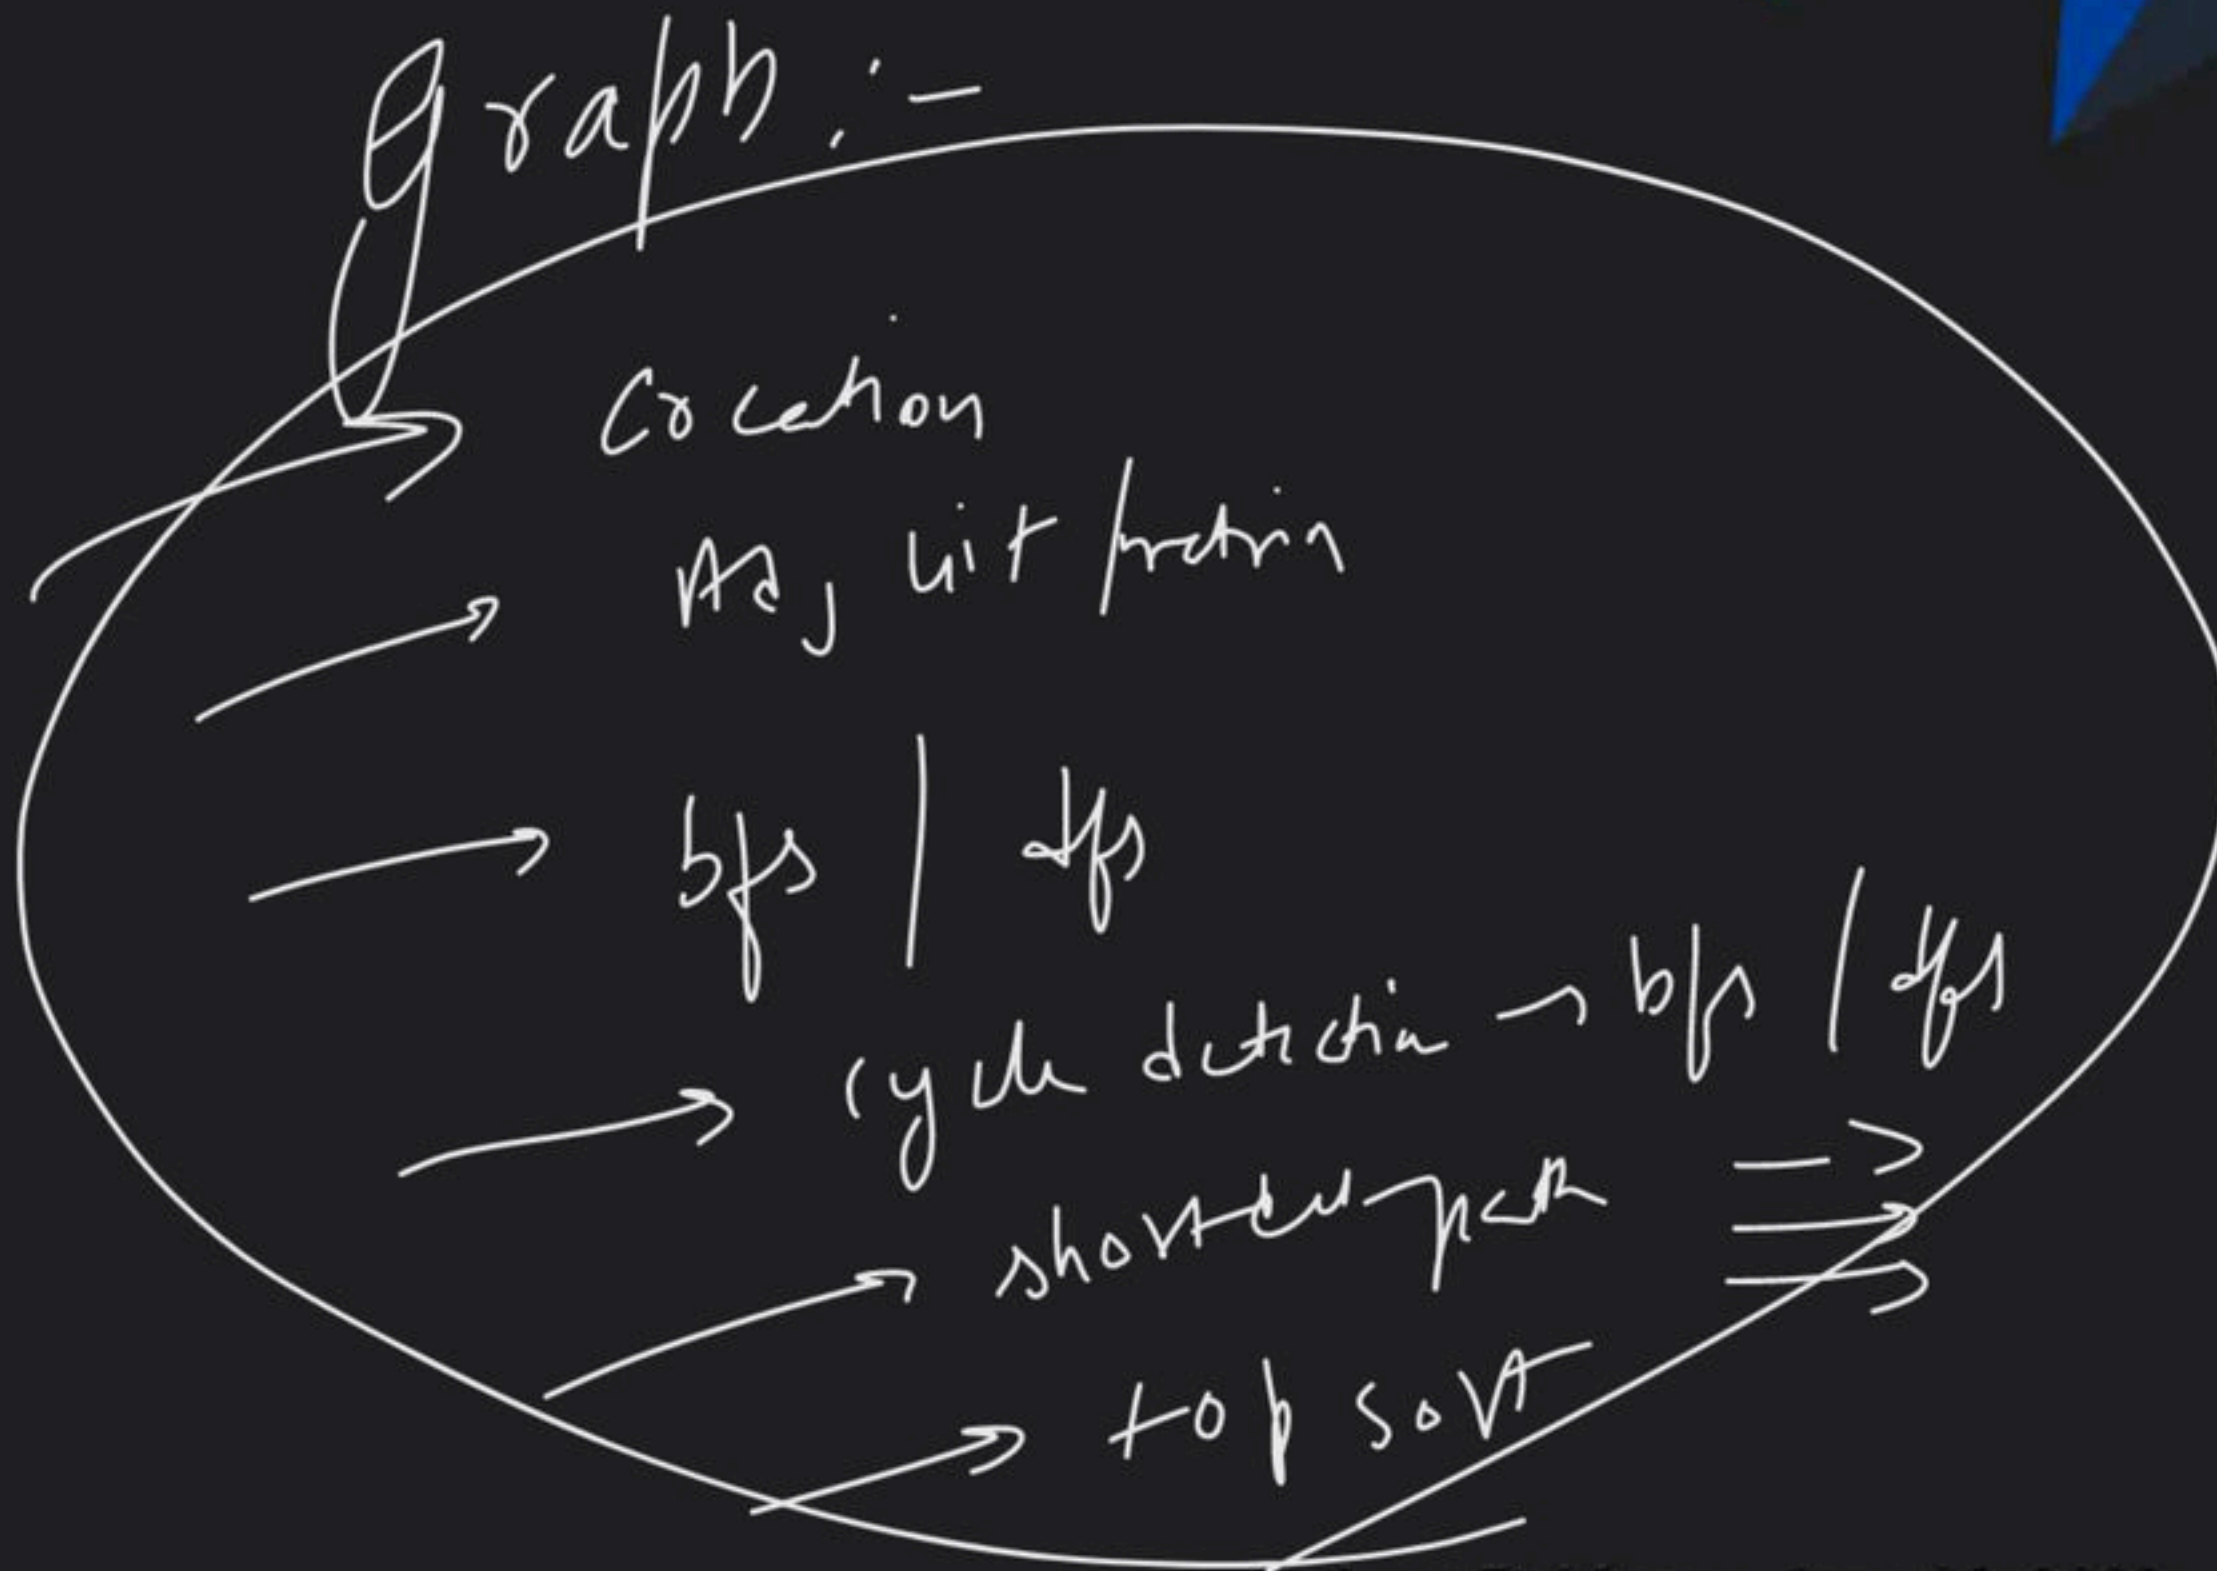 Graph :-
→ Creation
→ Adj list / matrix
→ bfs | dfs
→ cycle detection → bfs / dfs
→ shortest path → → →
→ top sort